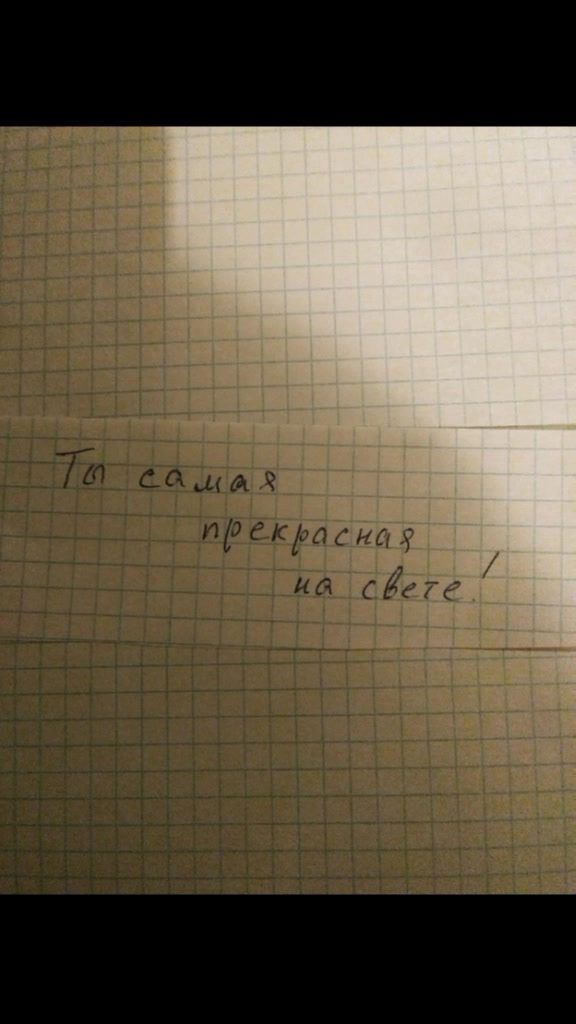 Ты самая
прекрасная
на свете!